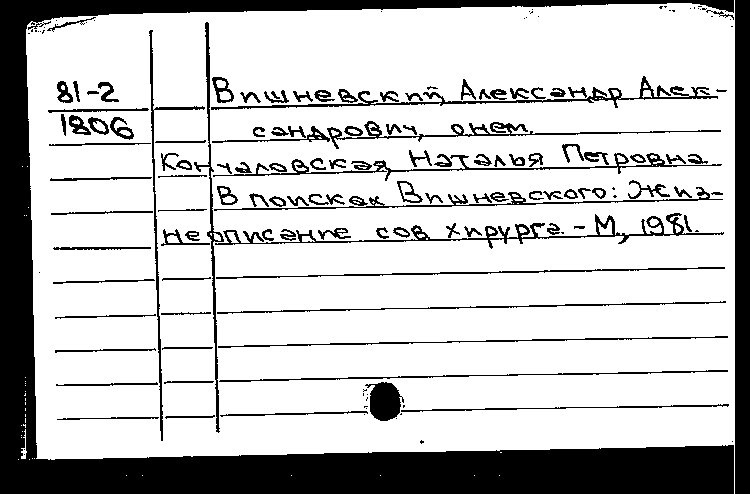 81-2 Вишневский, Александр Алек-
1806 сандрович, о нем.
Кончаловская, Наталья Петровна
В поисках Вишневского: Жиз-
неописание сов хирурга. - М., 1981.